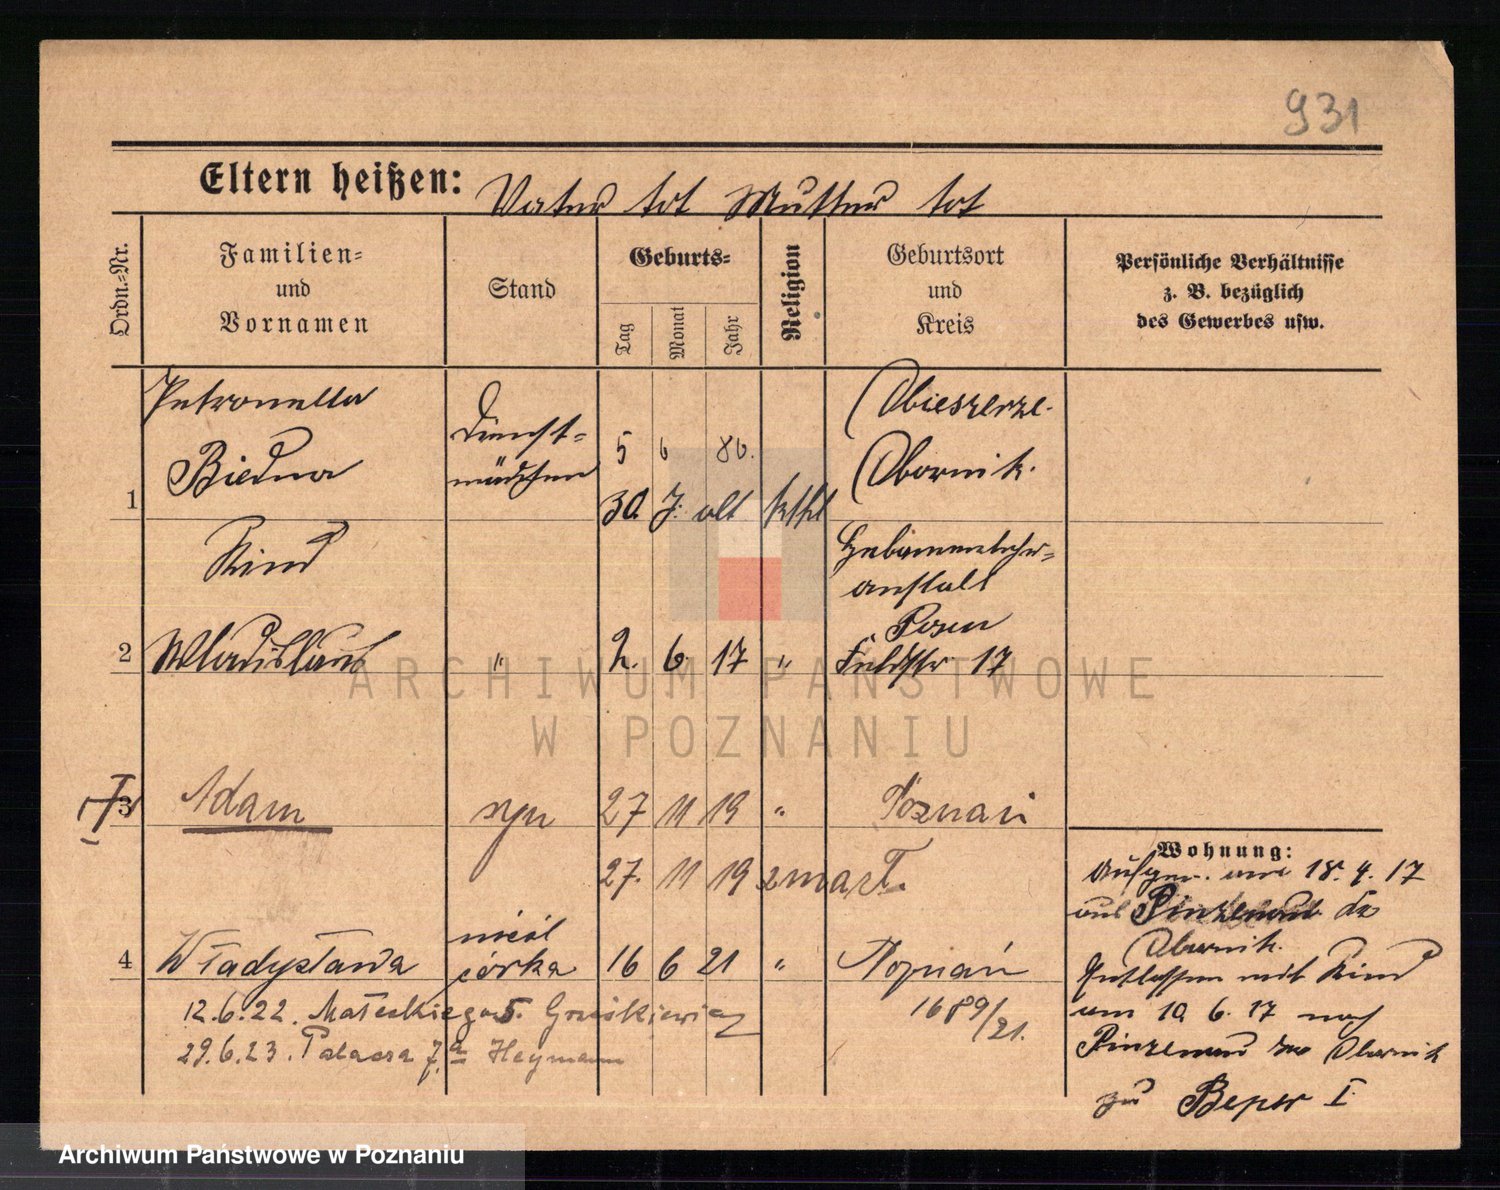 931
Eltern heißen: Vater tot Mutter tot
Ordn.-Nr.
Familien-
und
Vornamen
Stand
Geburts-
Tag
Monat
Jahr
Religion
Geburtsort
und
Kreis
Persönliche Verhältnisse
z. B. bezüglich
des Gewerbes usw.
Petronella
Biedna
1
Dienst-
mädchen
5 6 86.
30 J. alt kthl
Obieszerze.
Obornik.
Kind
Wladislaus
2
"
2. 6. 17 "
Hebammenlehr-
anstalt
Posen
Feldstr 17
3
Adam
syn
27 11 19 "
Poznań
27. 11 19 zmarł.
4
Władysława
nieśl
córka
16 6 21 "
Poznań
1689/21.
12.6.22. Małeckiego 5.
29.6.23. Palacza 7. Heymann
Wohnung:
18. 4. 17
aus Pinzenau
Obornik.
Entlassen mit Kind
am 10 6. 17 nach
Pinzenau Obornik
zu Beper I
ARCHIWUM PAŃSTWOWE
W POZNANIU
Archiwum Państwowe w Poznaniu